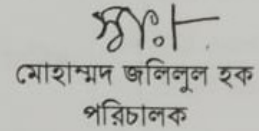 স্বাঃ।-
মোহাম্মদ জলিলুল হক
পরিচালক